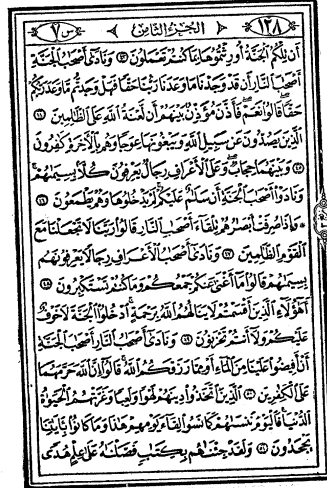 ١٢٨ الجزء الثامن س ٧
أَن تِلْكُمُ الْجَنَّةُ أُورِثْتُمُوهَا بِمَا كُنتُمْ تَعْمَلُونَ ٤٣ وَنَادَىٰ أَصْحَٰبُ الْجَنَّةِ
أَصْحَٰبَ النَّارِ أَن قَدْ وَجَدْنَا مَا وَعَدَنَا رَبُّنَا حَقًّا فَهَلْ وَجَدتُّم مَّا وَعَدَ رَبُّكُمْ
حَقًّا قَالُوا نَعَمْ فَأَذَّنَ مُؤَذِّنٌ بَيْنَهُمْ أَن لَّعْنَةُ اللَّهِ عَلَى الظَّٰلِمِينَ ٤٤
الَّذِينَ يَصُدُّونَ عَن سَبِيلِ اللَّهِ وَيَبْغُونَهَا عِوَجًا وَهُم بِالْآخِرَةِ كَٰفِرُونَ
٤٥ وَبَيْنَهُمَا حِجَابٌ وَعَلَى الْأَعْرَافِ رِجَالٌ يَعْرِفُونَ كُلًّا بِسِيمَىٰهُمْ
وَنَادَوْا أَصْحَٰبَ الْجَنَّةِ أَن سَلَٰمٌ عَلَيْكُمْ لَمْ يَدْخُلُوهَا وَهُمْ يَطْمَعُونَ ٤٦
وَإِذَا صُرِفَتْ أَبْصَٰرُهُمْ تِلْقَاءَ أَصْحَٰبِ النَّارِ قَالُوا رَبَّنَا لَا تَجْعَلْنَا مَعَ
الْقَوْمِ الظَّٰلِمِينَ ٤٧ وَنَادَىٰ أَصْحَٰبُ الْأَعْرَافِ رِجَالًا يَعْرِفُونَهُم
بِسِيمَىٰهُمْ قَالُوا مَا أَغْنَىٰ عَنكُمْ جَمْعُكُمْ وَمَا كُنتُمْ تَسْتَكْبِرُونَ ٤٨
أَهَٰؤُلَاءِ الَّذِينَ أَقْسَمْتُمْ لَا يَنَالُهُمُ اللَّهُ بِرَحْمَةٍ ادْخُلُوا الْجَنَّةَ لَا خَوْفٌ
عَلَيْكُمْ وَلَا أَنتُمْ تَحْزَنُونَ ٤٩ وَنَادَىٰ أَصْحَٰبُ النَّارِ أَصْحَٰبَ الْجَنَّةِ
أَنْ أَفِيضُوا عَلَيْنَا مِنَ الْمَاءِ أَوْ مِمَّا رَزَقَكُمُ اللَّهُ قَالُوا إِنَّ اللَّهَ حَرَّمَهُمَا
عَلَى الْكَٰفِرِينَ ٥٠ الَّذِينَ اتَّخَذُوا دِينَهُمْ لَهْوًا وَلَعِبًا وَغَرَّتْهُمُ الْحَيَوٰةُ
الدُّنْيَا فَالْيَوْمَ نَنسَىٰهُمْ كَمَا نَسُوا لِقَاءَ يَوْمِهِمْ هَٰذَا وَمَا كَانُوا بِـَٔايَٰتِنَا
يَجْحَدُونَ ٥١ وَلَقَدْ جِئْنَٰهُم بِكِتَٰبٍ فَصَّلْنَٰهُ عَلَىٰ عِلْمٍ هُدًى